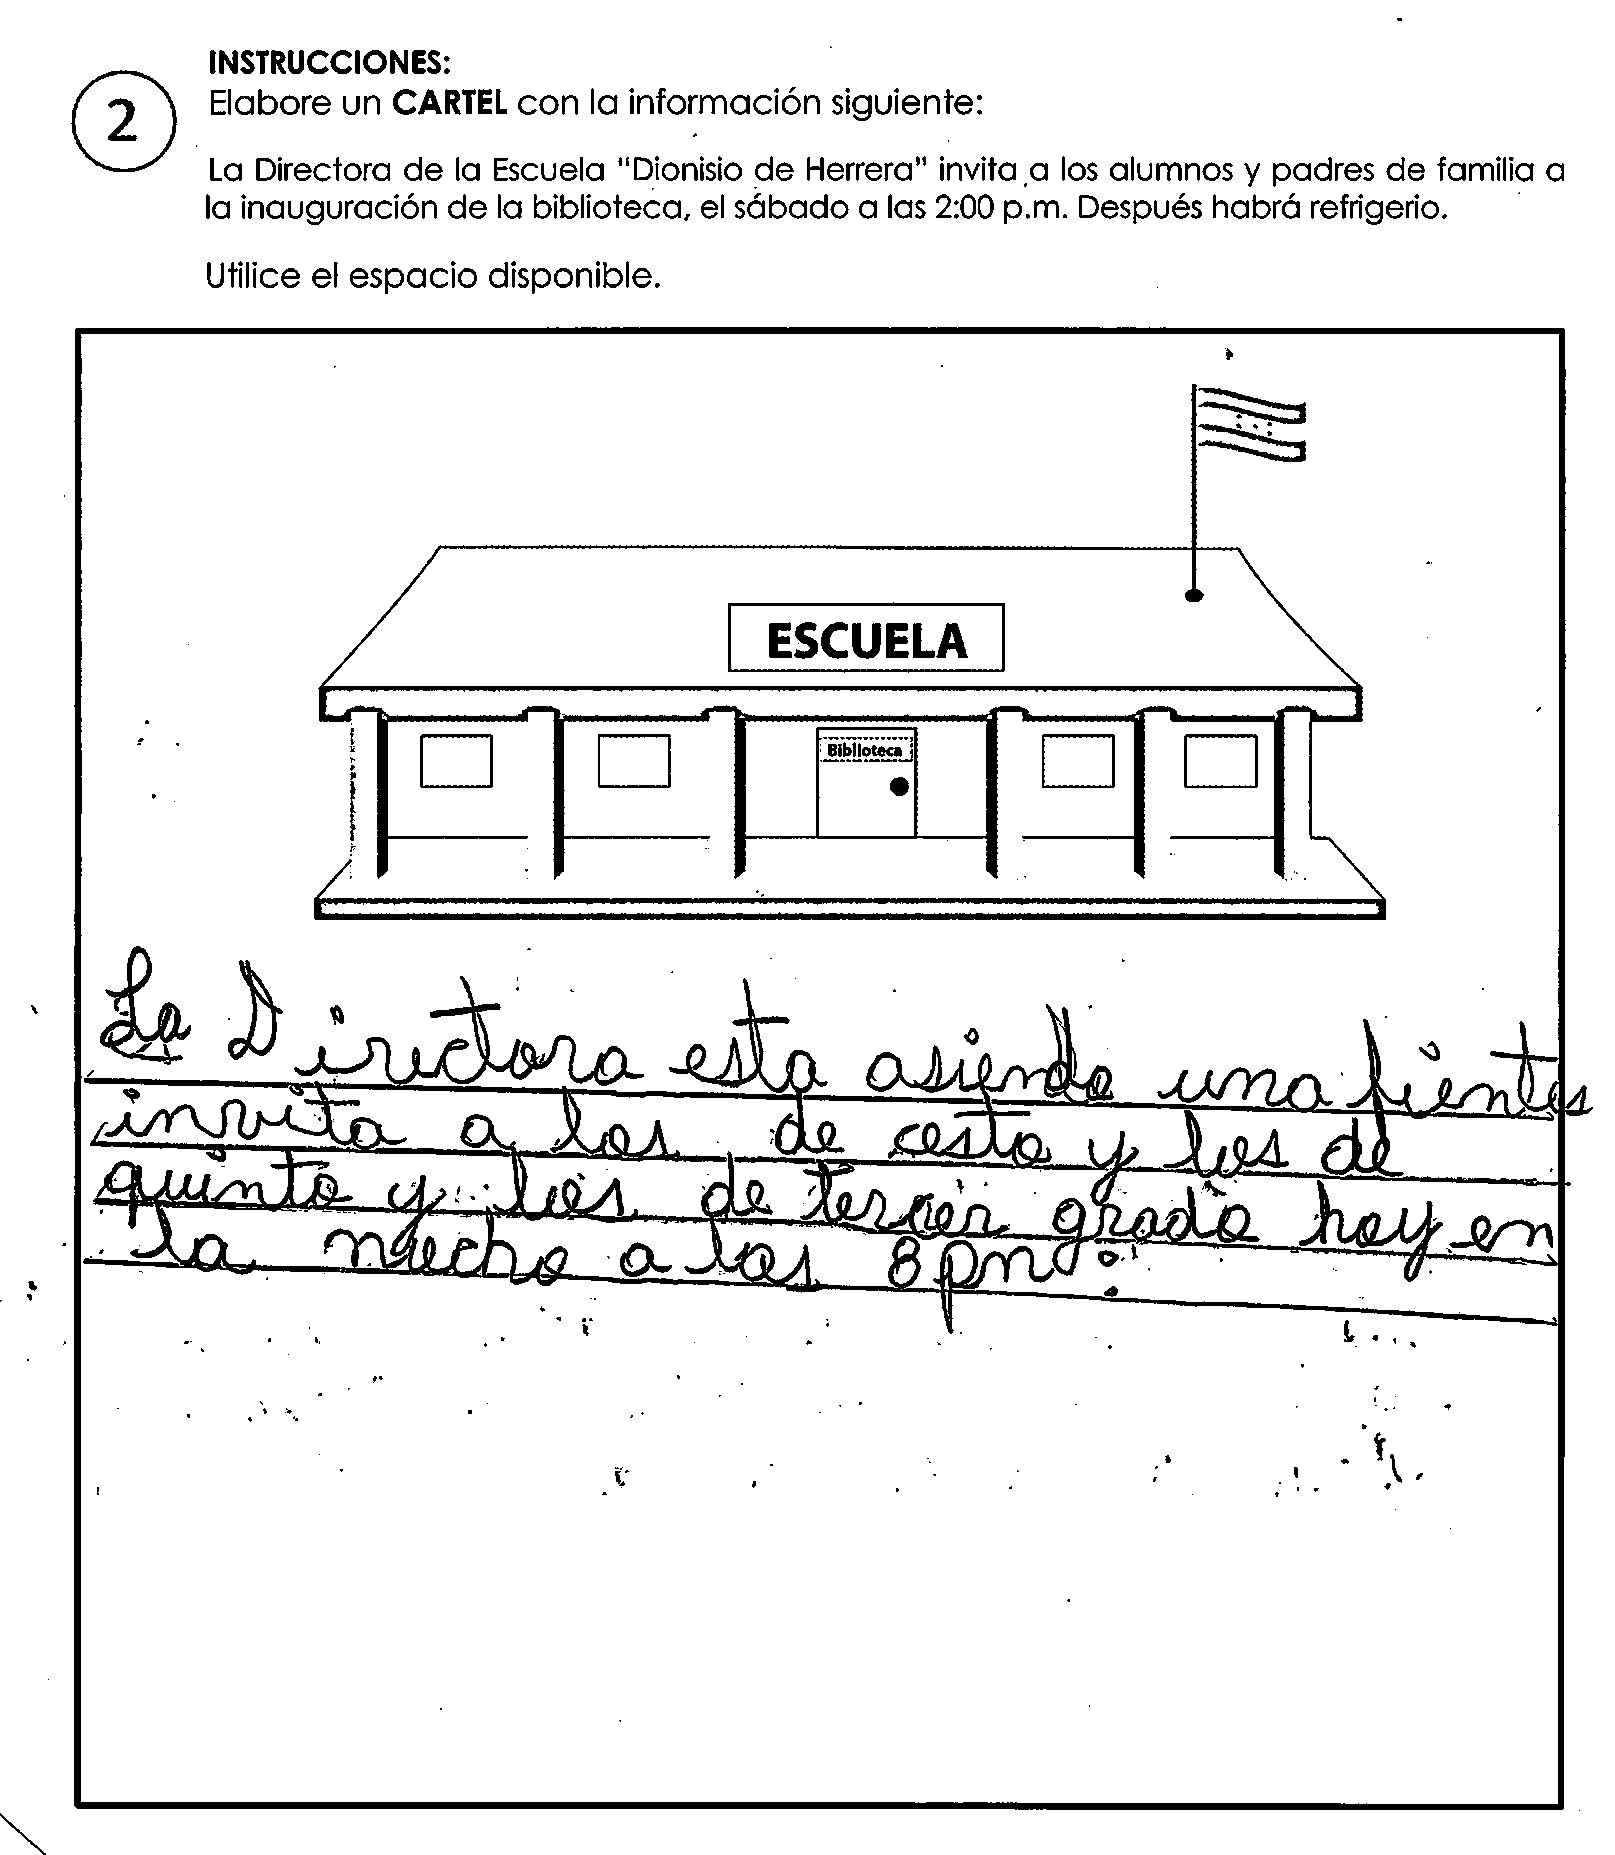 INSTRUCCIONES:
2
Elabore un CARTEL con la información siguiente:
La Directora de la Escuela "Dionisio de Herrera" invita a los alumnos y padres de familia a
la inauguración de la biblioteca, el sábado a las 2:00 p.m. Después habrá refrigerio.
Utilice el espacio disponible.
ESCUELA
Biblioteca
La Directora esta asiendo una fientes
invita a los de cesto y los de
quinto y los de tercer grado hoy en
la nucho a las 8 pn